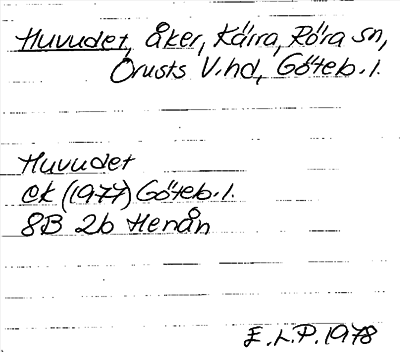 Huvudet, åker, Kärra, Röra sn,
Orusts V.hd, Göteb.l.
Huvudet
ek (1977) Göteb.l.
8B 2b Henån
E.L.P. 1978